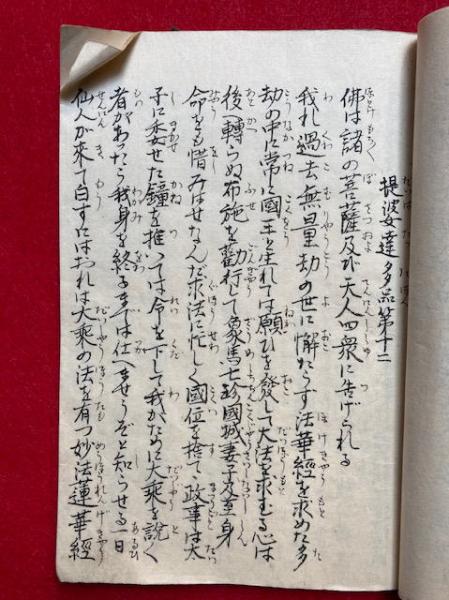 提婆達多品第十二
佛は諸の菩薩及び天人四衆に告げられる
我れ過去無量劫の世に懈たらず法華經を求めた多
劫の中に常に國王と生れては願ひを發して大法を求むる心は
後へ轉らぬ布施を勸行して象馬七珍國城妻子乃至身
命をも惜みはせなんだ求法に忙しく國位を捨て政事は太
子に委せた鐘を推いては令を下して我がために大乘を説く
者があつたら我身を終るまでは仕へませうぞと知らせる一日
仙人が来て白すにはおれは大乘の法を有つ妙法蓮華經